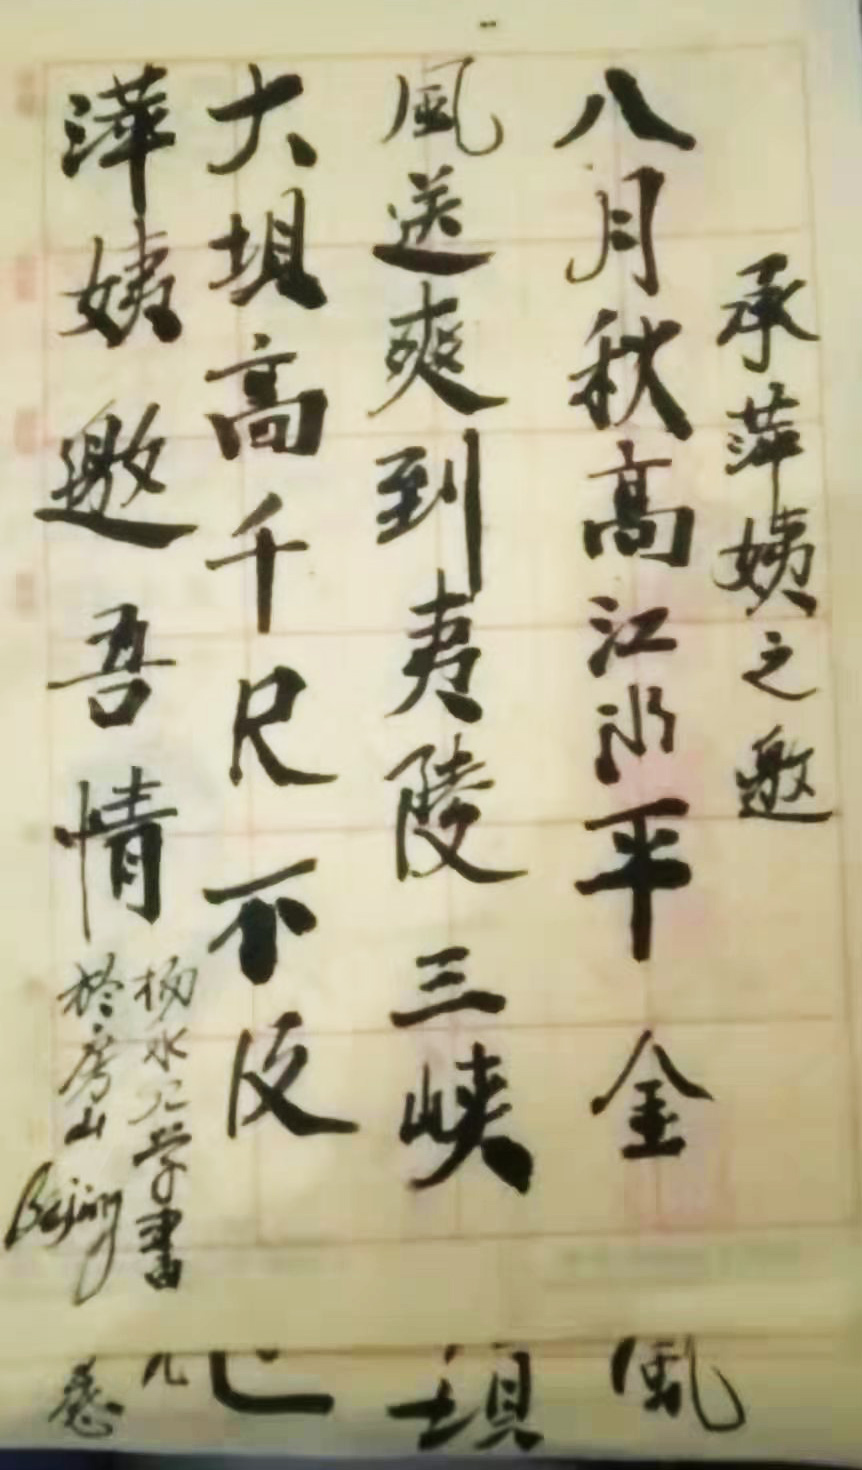 承萍姨之邀
八月秋高江水平金
風送爽到夷陵三峡
大坝高千尺不及
萍姨邀吾情
杨水元学書
於房山
Beijing
風
坝